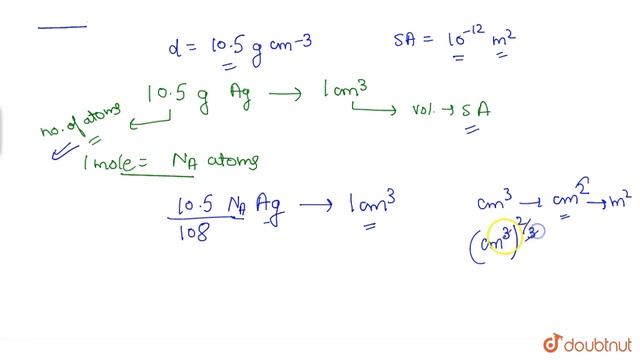 d = 10.5 g cm-3
SA = 10⁻¹² m²
10.5 g Ag → 1cm³
vol. → SA
no. of atoms
1 mole = NA atoms
10.5 NA Ag → 1cm³
108
cm³ → cm² → m²
(cm³)^2/3
doubtnut